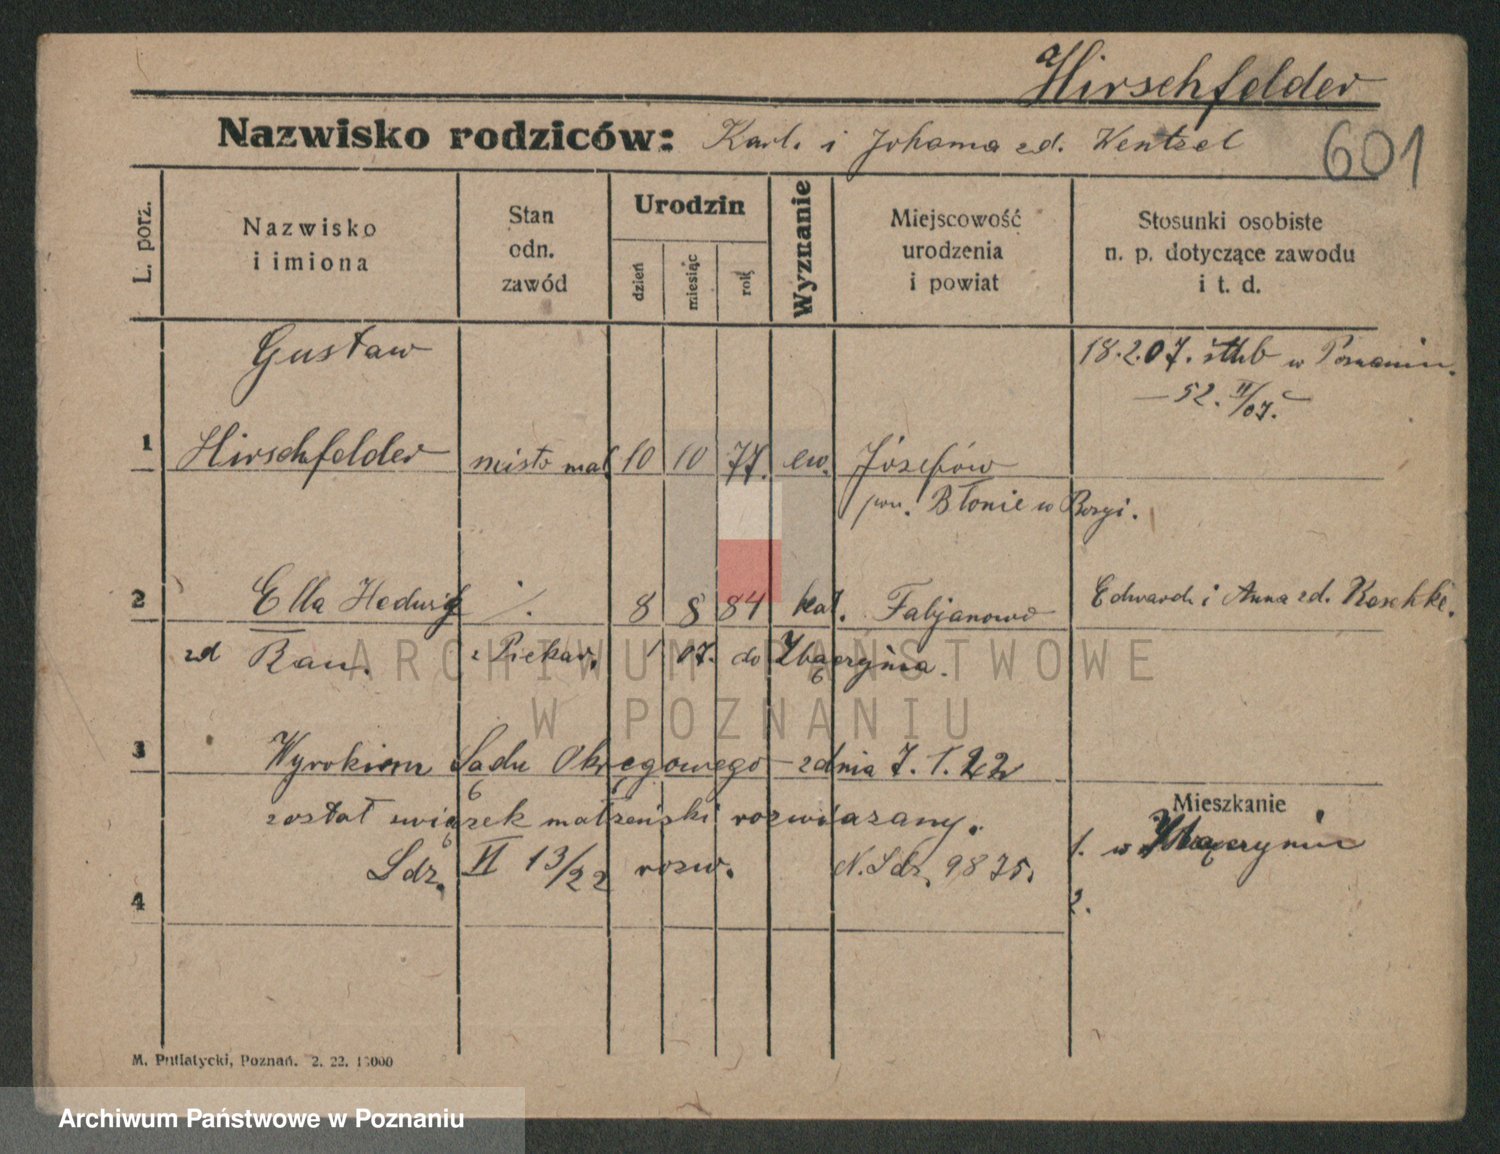 Hirschfelder
Nazwisko rodziców: Karl. i Johanna zd. Wentzel
601
L. porz.
Nazwisko i imiona
Stan odn. zawód
Urodzin
dzień miesiąc rok
Wyznanie
Miejscowość urodzenia i powiat
Stosunki osobiste n. p. dotyczące zawodu i t. d.
Gustaw
18.2.07. w Poznaniu.
52. II/07.
1 Hirschfelder mistr. mal. 10 10 77. ew. Józefów
pow. Błonie w Rosyi.
2 Ella Hedwig /. 8 8 84 kat. Fabjanowo Edward i Anna zd. Raschke.
zd Rau. z Piekar. 1 07. do Zbąszynia.
ARCHIWUM PAŃSTWOWE
W POZNANIU
3 Wyrokiem Sądu Okręgowego z dnia 7.1.22
został związek małżeński rozwiązany.
Mieszkanie
1. w Zbąszyniu
Ldz. II 13/22 rozw. N. Ldz. 9875.
2.
4
M. Putiatycki, Poznań. 2. 22. 15000
Archiwum Państwowe w Poznaniu